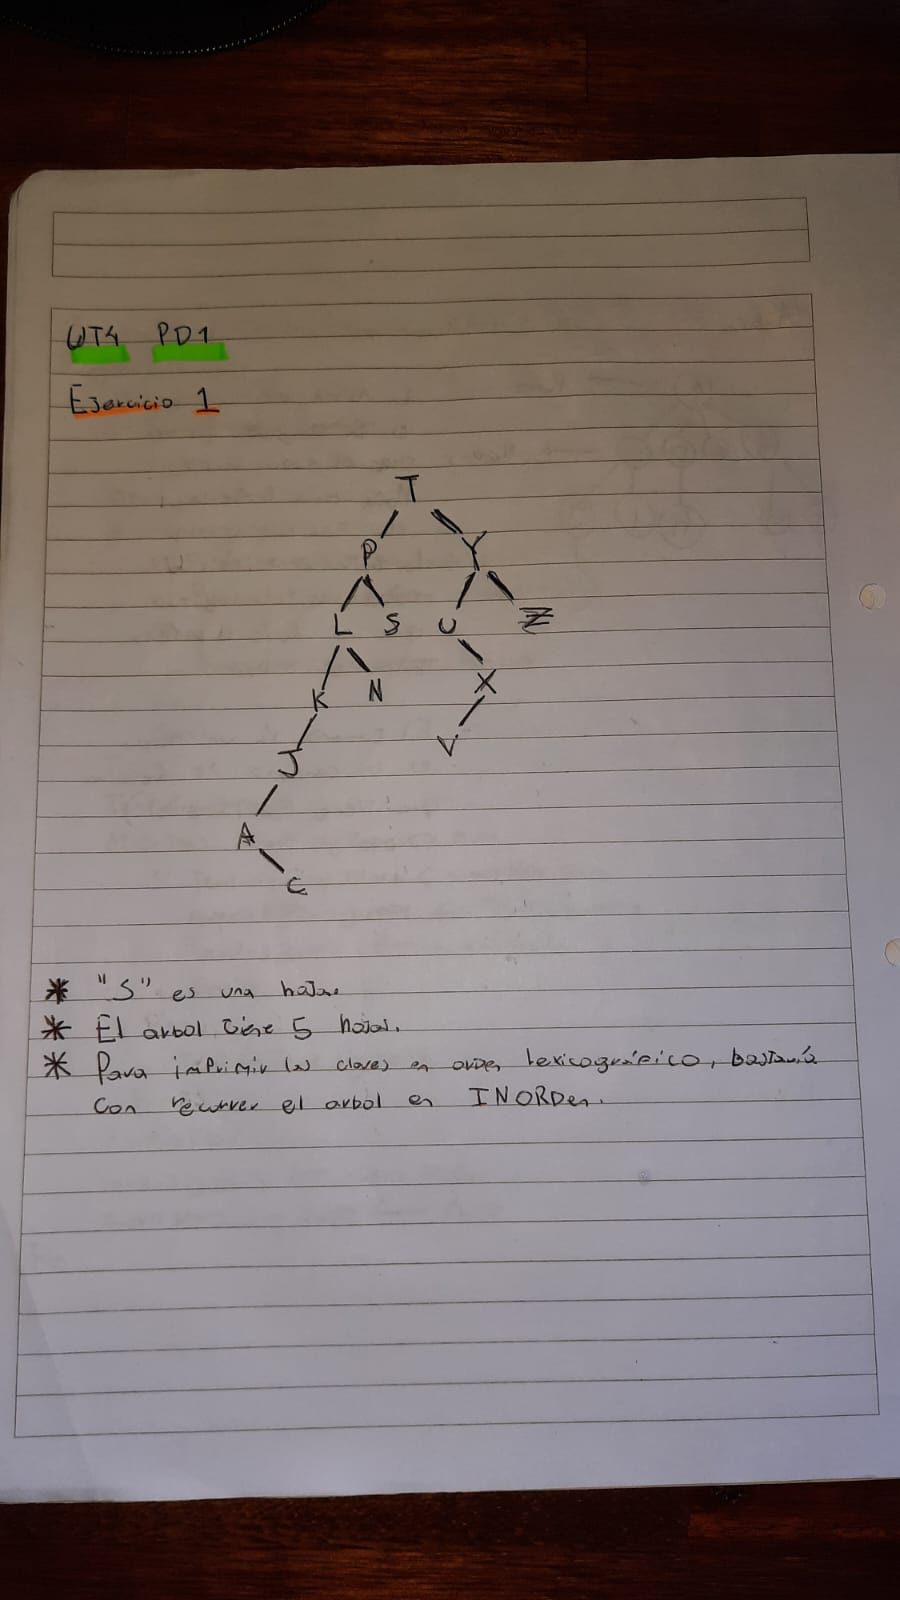 UT4 PD1
Ejercicio 1
T
P Y
L S U Z
K N X
J V
A
C
* "S" es una hoja.
* El arbol tiene 5 hojas.
* Para imprimir las claves en orden lexicográfico, bastaría
con recorrer el arbol en INORDen.